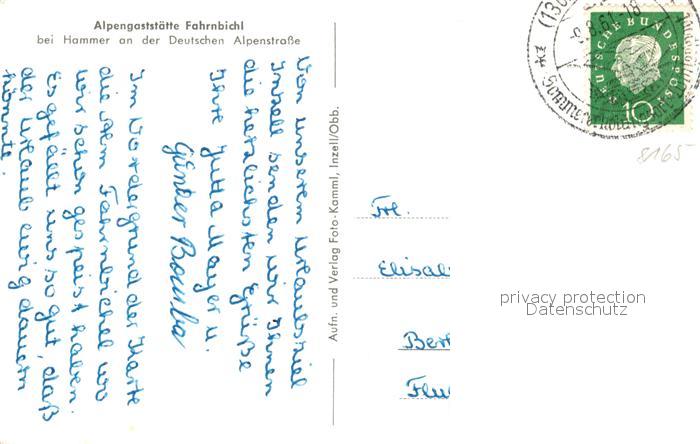 Alpengaststätte Fahrnbichl
bei Hammer an der Deutschen Alpenstraße
Von unserem Urlaubsziel
Inzell senden wir Ihnen
die herzlichsten Grüße
Ihre Jutta Mayer u.
Günter
Im Vordergrund der Karte
die Alm Fahrnbichel wo
wir schon gespeist haben.
Es gefällt uns so gut, daß
der Urlaub ewig dauern
könnte.
Aufn. und Verlag Foto-Kamml, Inzell/Obb.
DEUTSCHE BUNDESPOST
10
(13b)
61-18
Sommerholung
8165
Frl.
Elisab
Berl
Flu
privacy protection
Datenschutz